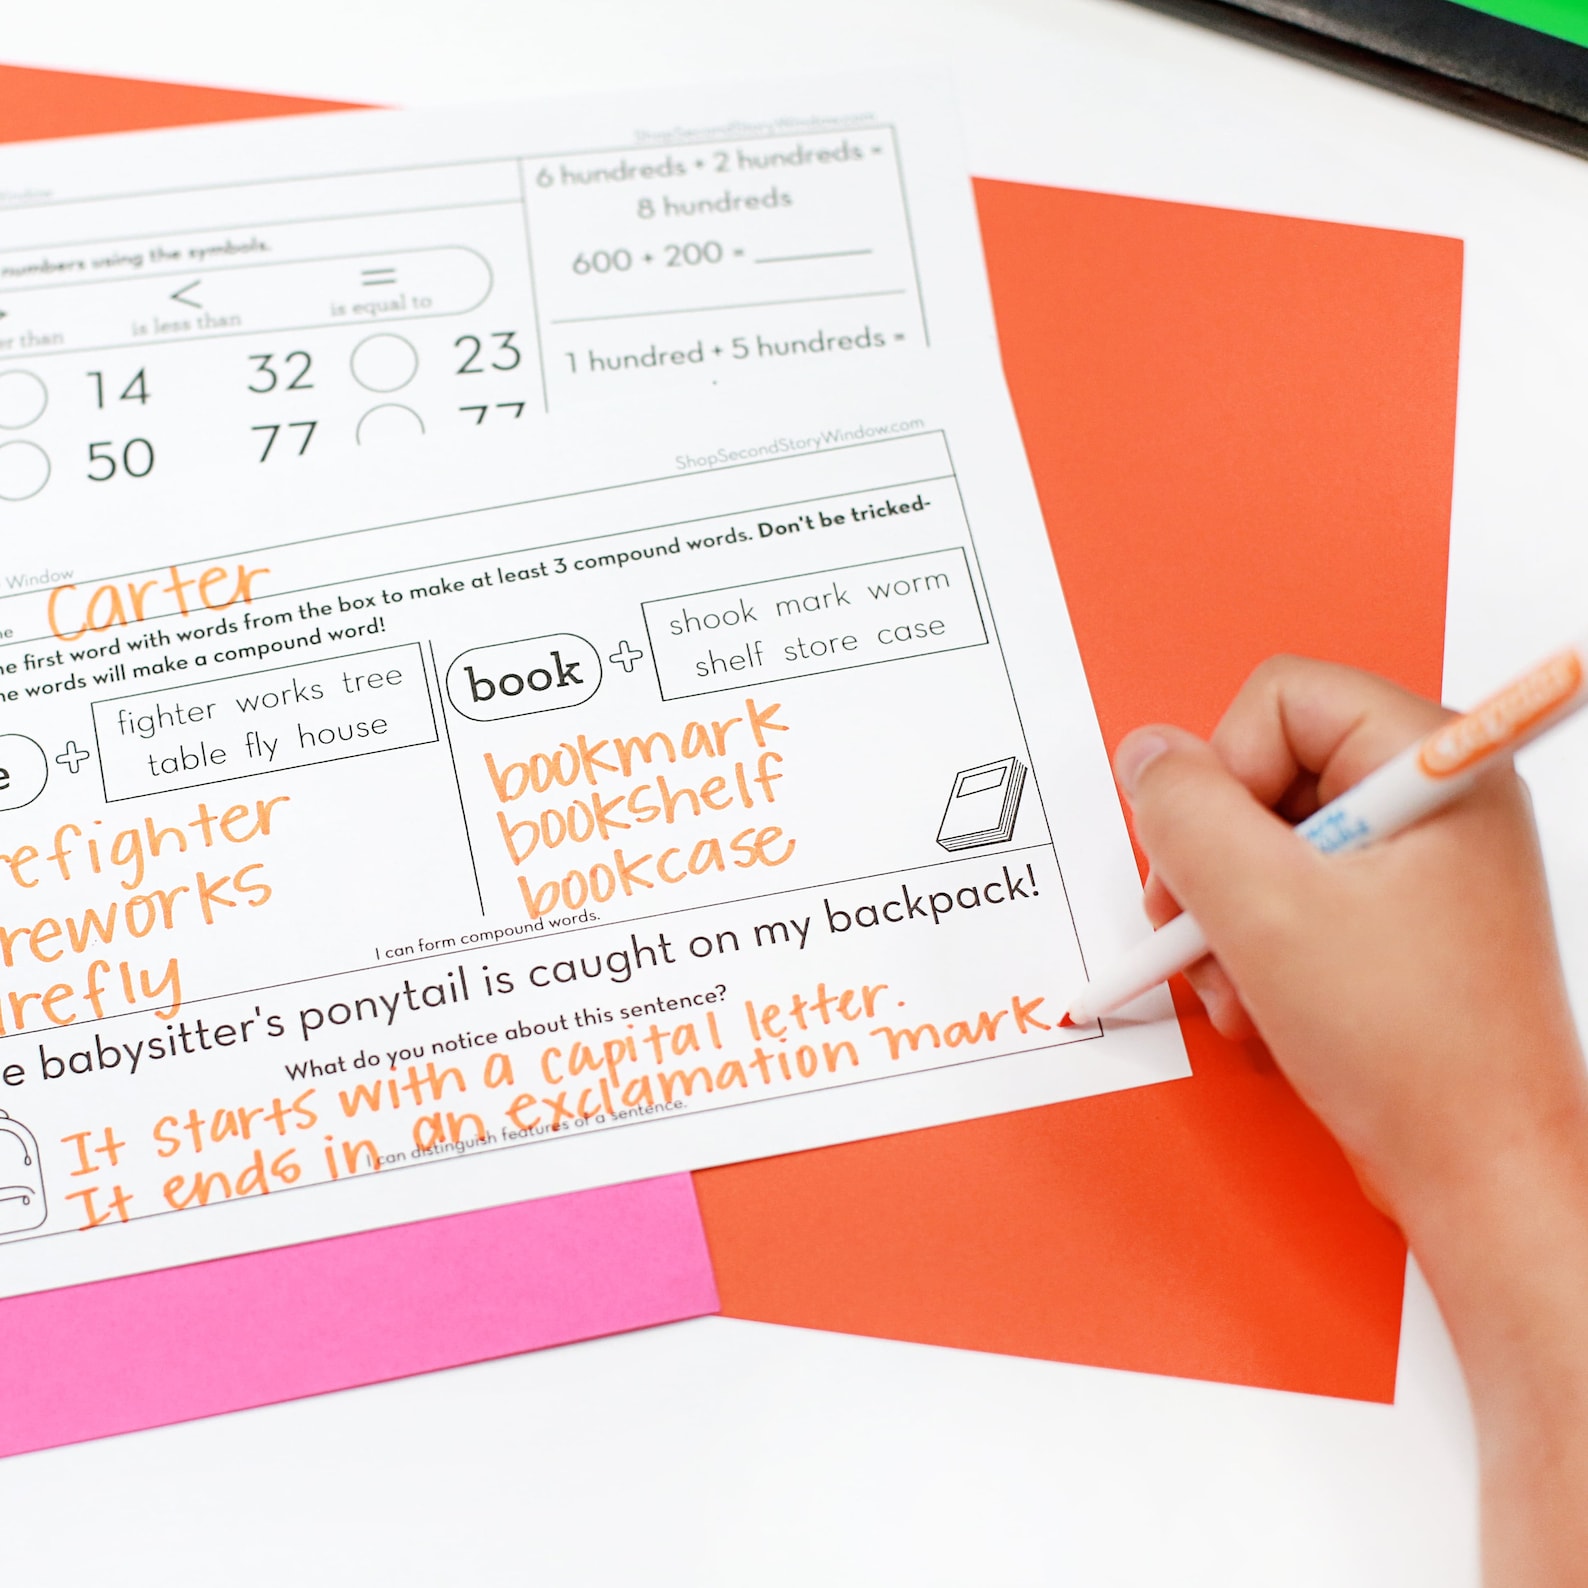 ShopSecondStoryWindow.com
Window
6 hundreds + 2 hundreds =
8 hundreds
600 + 200 =
1 hundred + 5 hundreds =
numbers using the symbols.
< =
is less than is equal to
than
14 32 23
50 77 77
ShopSecondStoryWindow.com
Window
Carter
first word with words from the box to make at least 3 compound words. Don't be tricked-
words will make a compound word!
fighter works tree
table fly house
+
refighter
reworks
refly
book + shook mark worm
shelf store case
bookmark
bookshelf
bookcase
I can form compound words.
e babysitter's ponytail is caught on my backpack!
What do you notice about this sentence?
It starts with a capital letter.
It ends in an exclamation mark.
I can distinguish features of a sentence.